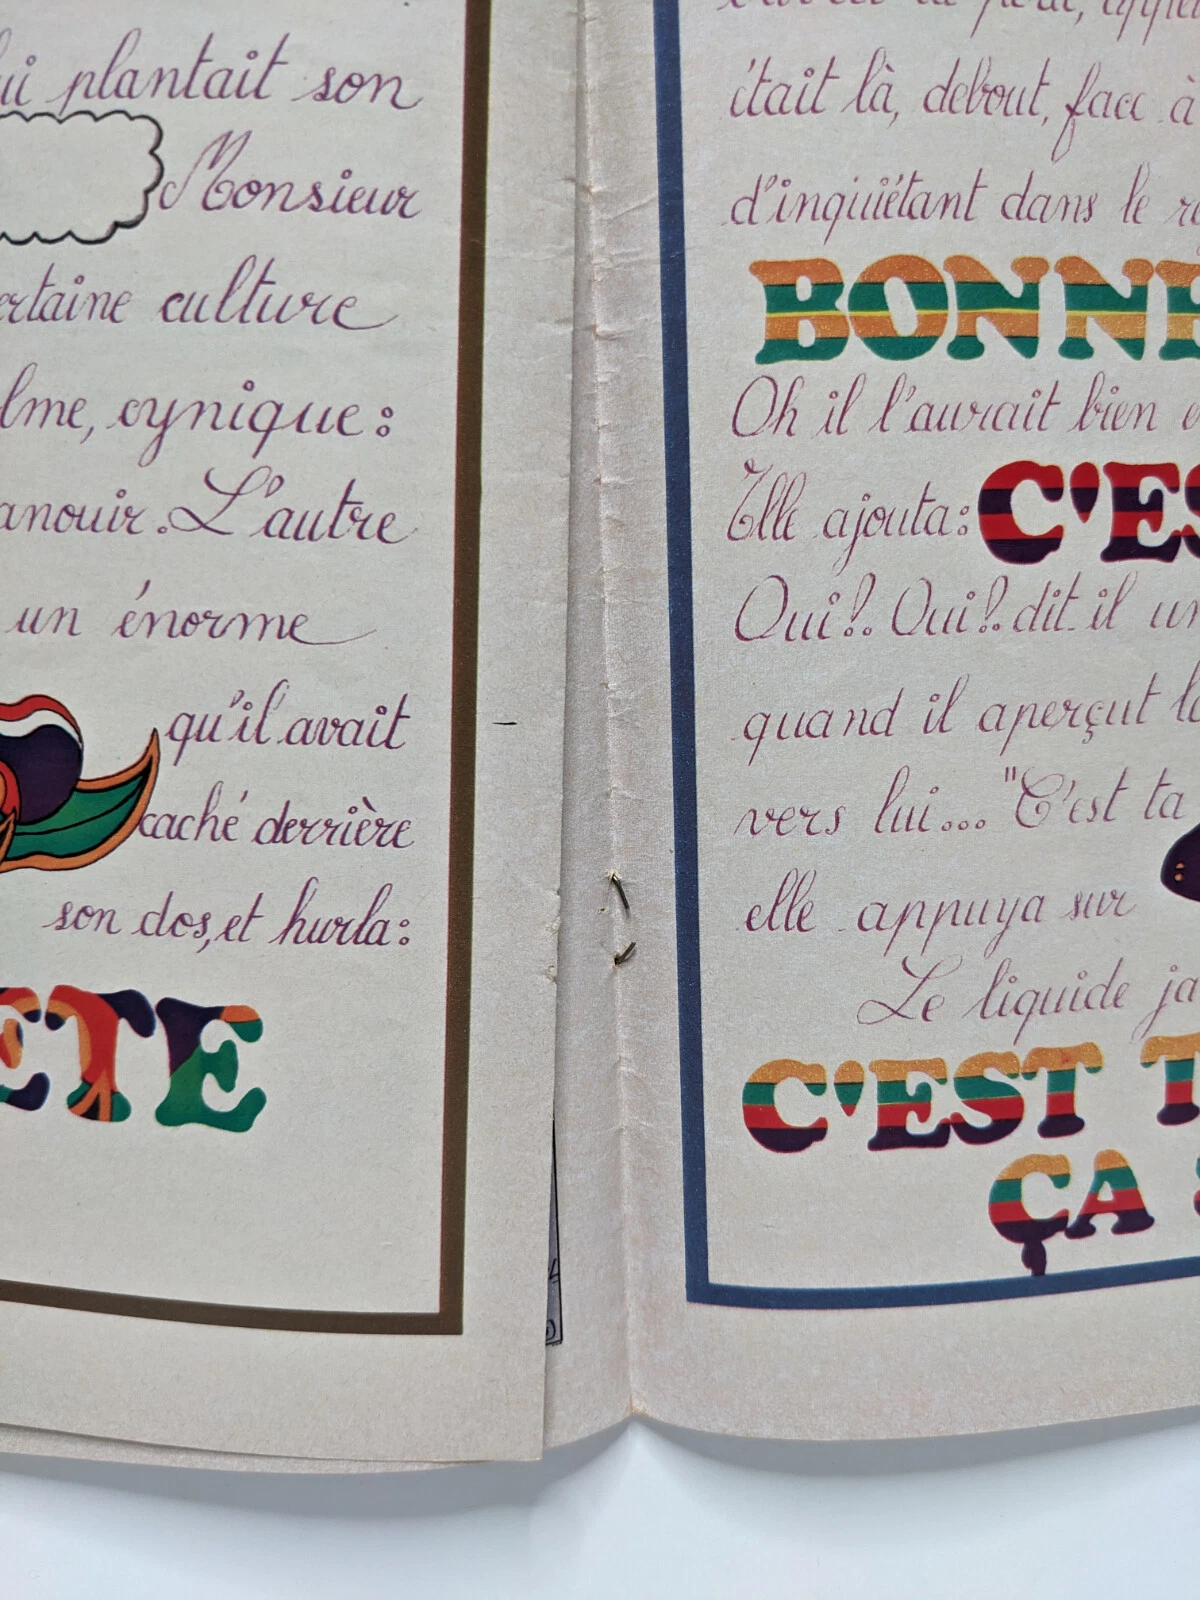 plantait son
Monsieur
culture
cynique :
L'autre
un énorme
qu'il avait
caché derrière
son dos, et hurla :
ETE
était là, debout, face à
d'inquiétant dans le
BONNE
Oh il l'aurait bien
Elle ajouta : C'ES
Oui!. Oui!. dit-il
quand il aperçut
vers lui... "C'est ta
elle appuya sur
Le liquide
C'EST T
ÇA